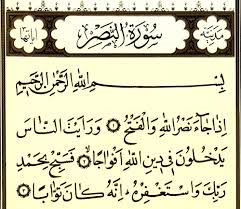 مدنية سُورَةُ النَّصْرِ آياتها
بِسْمِ اللَّهِ الرَّحْمَٰنِ الرَّحِيمِ
إِذَا جَاءَ نَصْرُ اللَّهِ وَالْفَتْحُ ۝ وَرَأَيْتَ النَّاسَ
يَدْخُلُونَ فِي دِينِ اللَّهِ أَفْوَاجًا ۝ فَسَبِّحْ بِحَمْدِ
رَبِّكَ وَاسْتَغْفِرْهُ ۚ إِنَّهُ كَانَ تَوَّابًا ۝